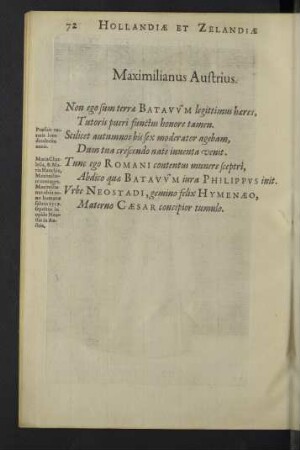 72 HOLLANDIÆ ET ZELANDIÆ
Maximilianus Austrius.
Non ego sum terra BATAVVM legitimus hæres,
Tutoris pueri functus honore tamen.
Scilicet autumnos bis sex moderator agebam,
Dum tua crescendo nate iuventa venit.
Tunc ego ROMANI contentus munere sceptri,
Abdico qua BATAVVM iura PHILIPPVS init.
Vrbe NEOSTADI, gemino felix HYMENÆO,
Materno CÆSAR concipior tumulo.